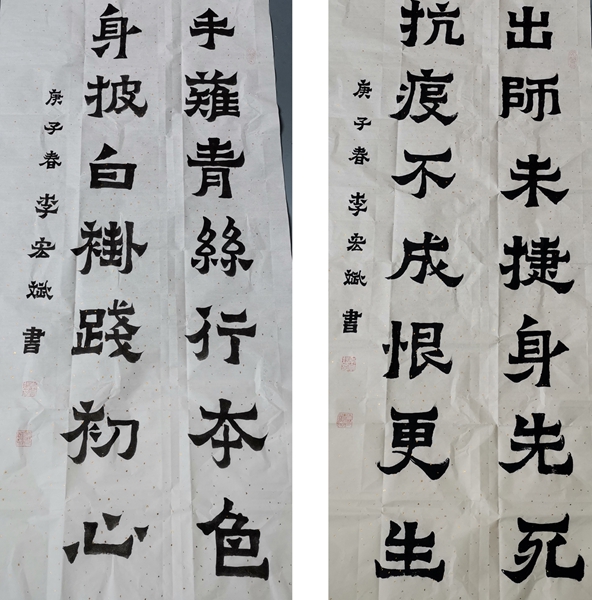 手薙青絲行本色
身披白褂踐初心
庚子春 李宏斌書
出師未捷身先死
抗疫不成恨更生
庚子春 李宏斌書